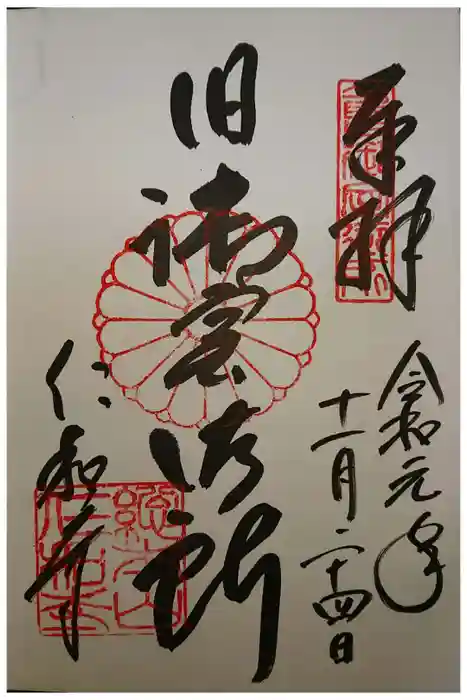 奉拝
令和元年
十一月二十四日
旧御室御所
仁和寺